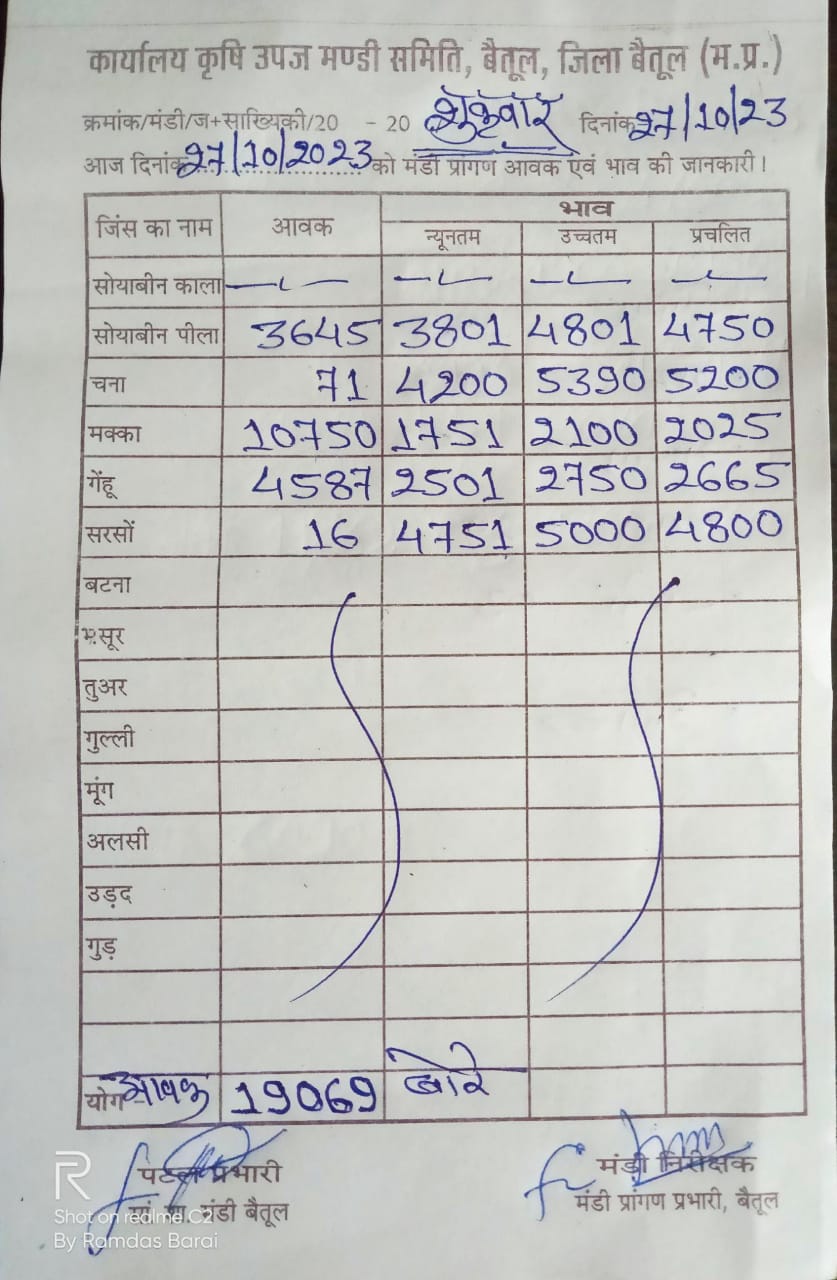 कार्यालय कृषि उपज मण्डी समिति, बैतूल, जिला बैतूल (म.प्र.)
क्रमांक/मंडी/ज+साख्यिकी/20 - 20 शुक्रवार दिनांक 27/10/23
आज दिनांक 27/10/2023 को मंडी प्रांगण आवक एवं भाव की जानकारी।
जिंस का नाम आवक भाव
न्यूनतम उच्चतम प्रचलित
सोयाबीन काला
सोयाबीन पीला 3645 3801 4801 4750
चना 71 4200 5390 5200
मक्का 10750 1751 2100 2025
गेंहू 4587 2501 2750 2665
सरसों 16 4751 5000 4800
बटना
मसूर
तुअर
गुल्ली
मूंग
अलसी
उड़द
गुड़
योग आवक 19069 बोरे
प्रभारी मंडी निरीक्षक
मंडी बैतूल मंडी प्रांगण प्रभारी, बैतूल
R
Shot on realme C2
By Ramdas Barai